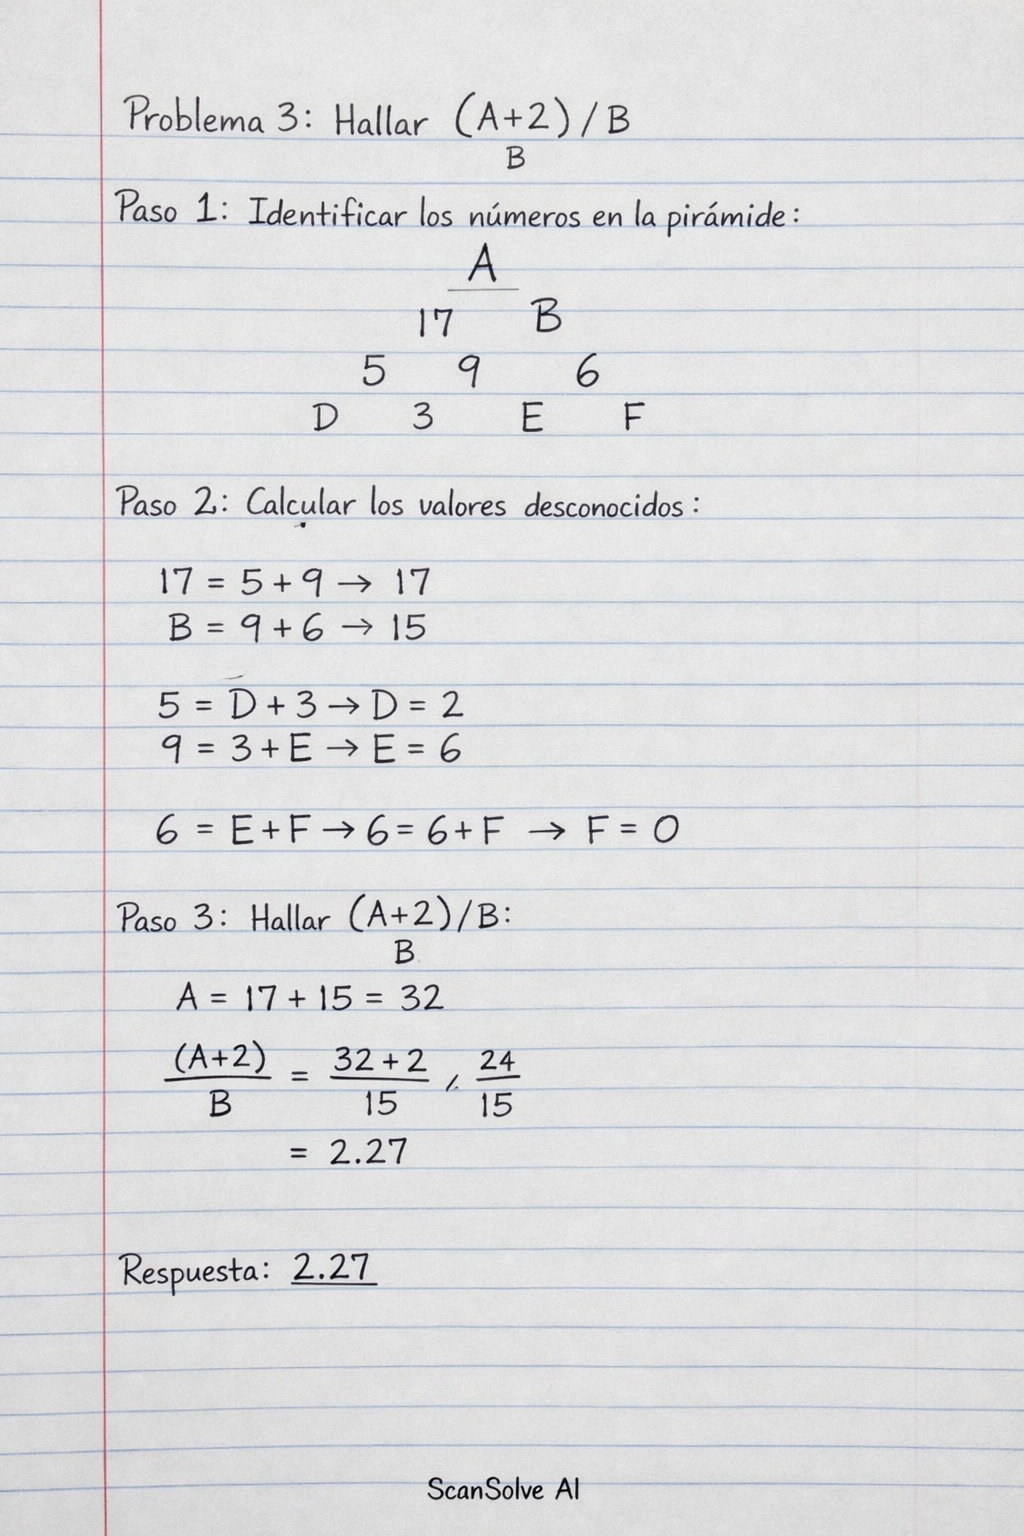 Problema 3: Hallar (A+2)/B
B
Paso 1: Identificar los números en la pirámide:
A
17 B
5 9 6
D 3 E F
Paso 2: Calcular los valores desconocidos:
17 = 5 + 9 → 17
B = 9 + 6 → 15
5 = D + 3 → D = 2
9 = 3 + E → E = 6
6 = E + F → 6 = 6 + F → F = 0
Paso 3: Hallar (A+2)/B:
B
A = 17 + 15 = 32
(A+2) / B = 32 + 2 / 15 , 24 / 15
= 2.27
Respuesta: 2.27
ScanSolve AI